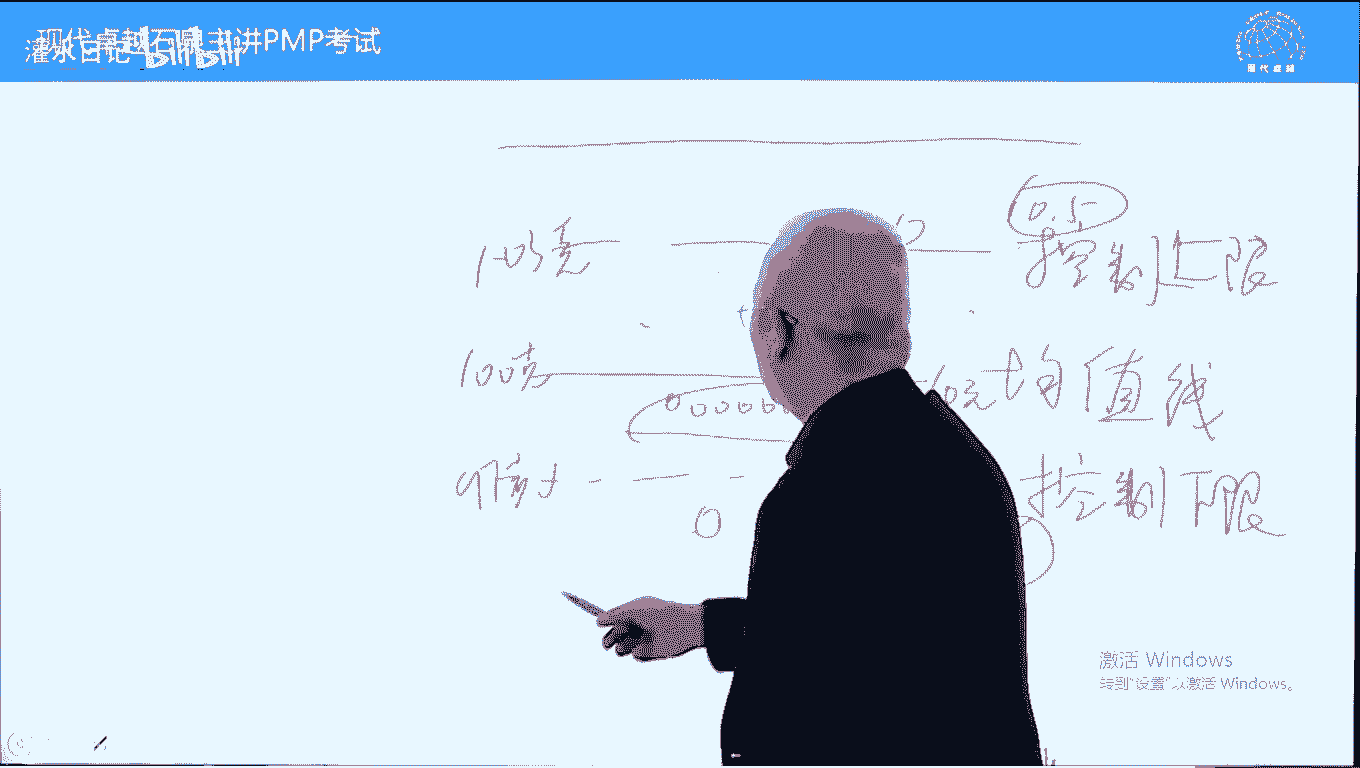 现代卓越石鼎主讲PMP考试
灌水日记 bilibili
现代卓越
0.5
103克
控制上限
100克
均值线
控制下限
0
激活 Windows
转到"设置"以激活 Windows。